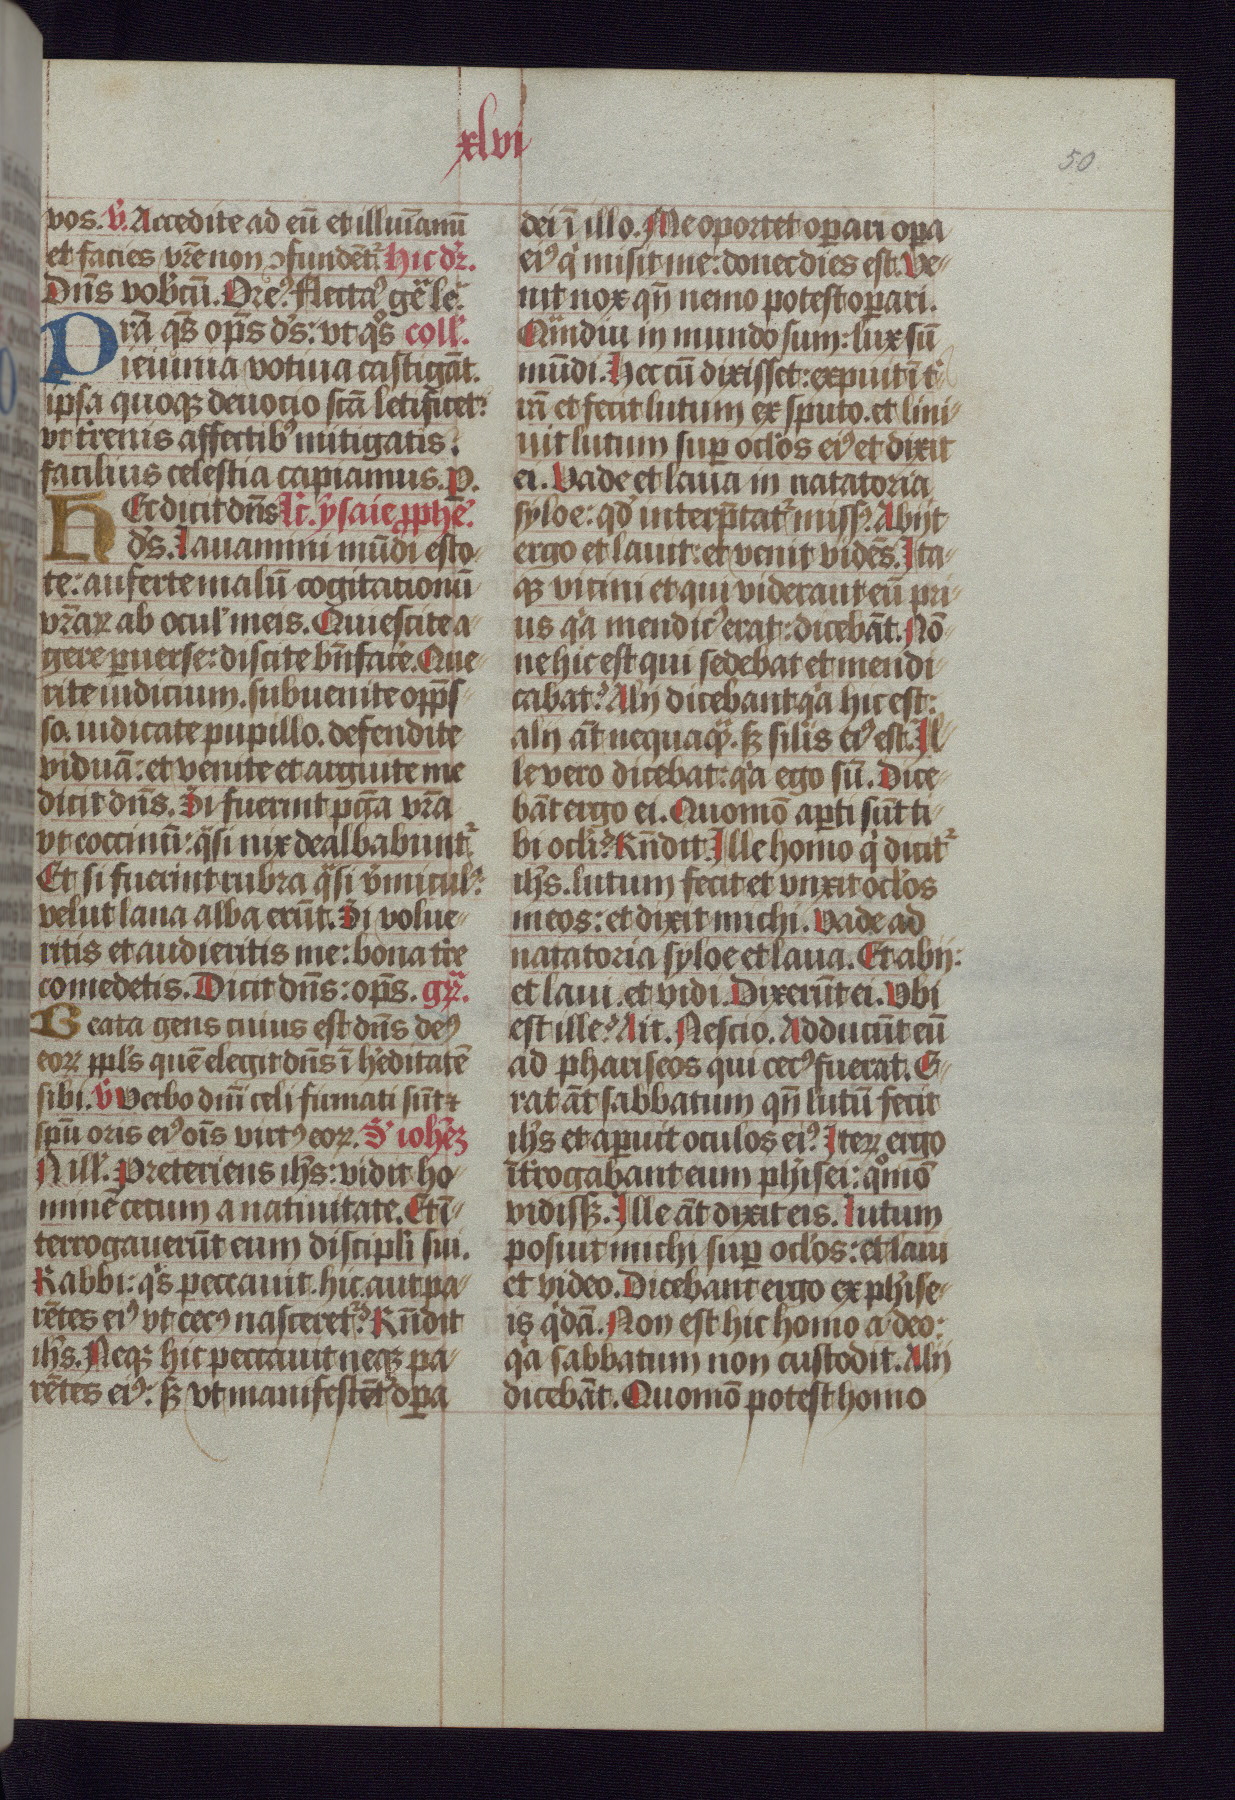 xlvi
50.
vos. V̄. Accedite ad eū et illuīamī
et facies vr̄e non ɔfundēt᷑. Hic dr̄.
Dūs vob̄cū. Ore᷒. Flecta᷒ gē le.
Prā qs̄ op̄s ds̄: vt qͦs coll᷑.
ieiunia votiua castigāt.
ipsa quoqꝫ deuocio scā letificet:
vt t̄renis affectib᷒ mitigatis:
facilius celestia capiamus. P.
Hec dicit dn̄s Lc̄. ysaie ꝓph̄e.
ds̄. Lauamini mūdi esto-
te: auferte malū cogitationū
vr̄aꝝ ab ocul᷑ meis. Quiescite a-
gere ꝑuerse: discite bn̄facē. Que-
rite iudicium. subuenite opp̄s-
so. iudicate pupillo. defendite
viduā: et venite et arguite me
dicit dn̄s. Si fuerint pctā vr̄a
vt coccinū: qͣsi nix dealbabunt᷑
Et si fuerint rubra qͣsi v̄micul᷑:
velut lana alba erūt. Si volue-
ritis et audieritis me: bona tr̄e
comedetis. Dicit dn̄s: op̄s. gr̄.
Beata gens cuius est dn̄s de᷒
eoꝝ ppl̄s quē elegit dn̄s ī h̄editatē
sibi. V̄ Verbo dn̄i celi firmati sūt ⁊
spū oris ei᷒ oīs virt᷒ eoꝝ. S᷑ ioh̄eꝫ
N ill᷑. Preteriens ih̄s: vidit ho-
minē cecum a natiuitate. Et ī-
terrogauerūt eum discipl̄i sui.
Rabbi: qͥs peccauit. hic aut pa-
rētes ei᷒ vt cec᷒ nasceret᷑? Rn̄dit
ih̄s. Neqꝫ hic peccauit neqꝫ pa-
rētes ei᷒: sꝫ vt manifestēt᷑ oꝑa
dei ī illo. Me oportet oꝑari oꝑa
ei᷒ qͥ misit me: donec dies est. Ve-
nit nox qn̄ nemo potest oꝑari.
Qͣndiu in mundo sum: lux sū
mūdi. Hec cū dixisset: expuit ī t᷑-
rā et fecit lutum ex sputo. et lini-
uit lutum suꝑ ocl̄os ei᷒ et dixit
ei. Vade et laua in natatoria
syloe: qd̄ interp̄tat᷑ miss᷒. Abijt
ergo et lauit: et venit vidēs. Ita-
qꝫ vicini et qui viderant eū pri-
us qͥa mendic᷒ erat: dicebāt. Nō-
ne hic est qui sedebat et mendi-
cabat? Alij dicebant qͥa hic est:
alij āt nequaqͣꝫ. sꝫ sil̄is ei᷒ est. Il-
le vero dicebat: qͥa ego sū. Dice-
bāt ergo ei. Quomō aꝑti sūt ti-
bi ocl̄i? Rn̄dit. Ille homo qͥ dicit᷑
ih̄s. lutum fecit et vnxit ocl̄os
meos: et dixit michi. Vade ad
natatoria syloe et laua. Et abij:
et laui. et vidi. Dixerūt ei. Vbi
est ille? Ait. Nescio. Adducūt eū
ad phariseos qui cec᷒ fuerat. E-
rat āt sabbatum qn̄ lutū fecit
ih̄s et aperuit oculos ei᷒. Iteꝝ ergo
īt̄rogabant eum ph̄isei: qͦmō
vidissꝫ. Ille āt dixit eis. Lutum
posuit michi suꝑ ocl̄os: et laui
et video. Dicebant ergo ex ph̄ise-
is qͥdā. Non est hic homo a deo:
qͥa sabbatum non custodit. Alij
dicebāt. Quomō potest homo